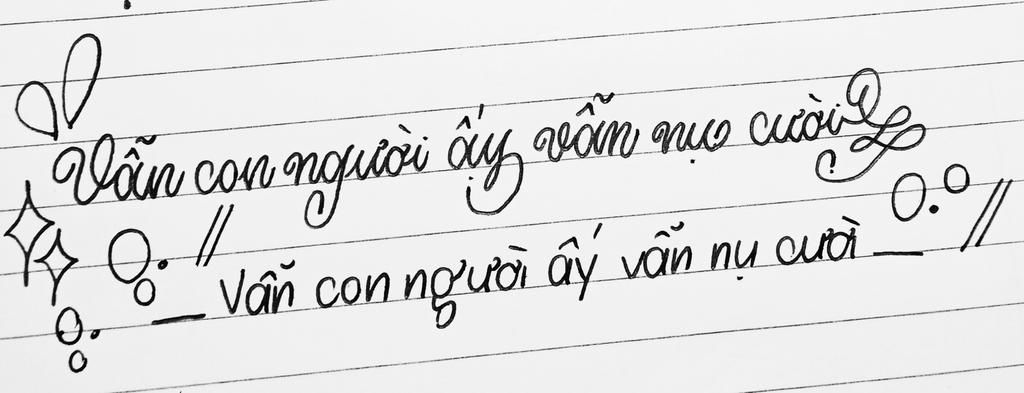 Vẫn con người ấy vẫn nụ cười
Vẫn con người ấy vẫn nụ cười